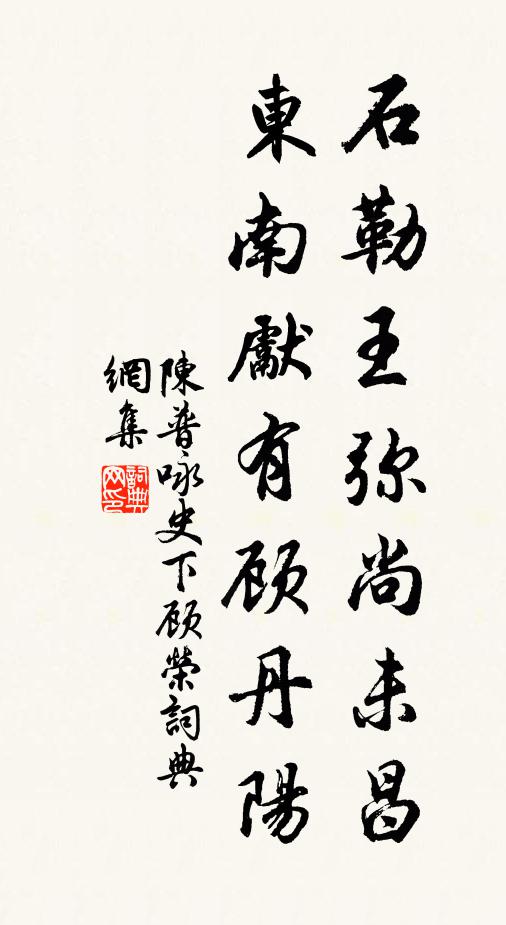 石勒王弥尚未昌
東南獻有顾丹陽
陳普咏史下顾榮詞典
網集
詞典
网印